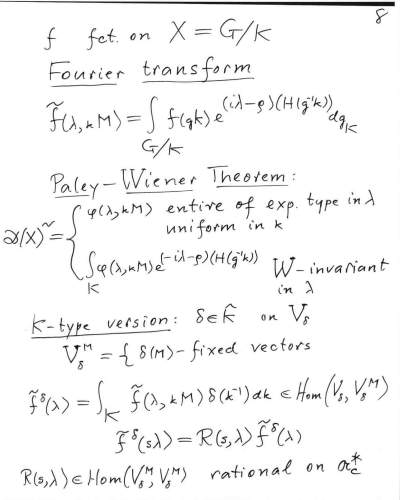 8
f fct. on X = G/K
Fourier transform
f̃(λ, kM) = ∫_{G/K} f(gk) e^{(iλ-ρ)(H(g⁻¹k))} dg_K
Paley-Wiener Theorem:
𝒟(X)~ = { φ(λ, kM) entire of exp. type in λ
uniform in k
∫_K φ(λ, kM) e^{(-iλ-ρ)(H(g⁻¹k))} W-invariant
in λ
K-type version: δ ∈ K̂ on V_δ
V_δ^M = { δ(M)-fixed vectors
f̃^δ(λ) = ∫_K f̃(λ, kM) δ(k⁻¹) dk ∈ Hom(V_δ, V_δ^M)
f̃^δ(sλ) = R(s, λ) f̃^δ(λ)
R(s, λ) ∈ Hom(V_δ^M, V_δ^M) rational on 𝔞_c^*